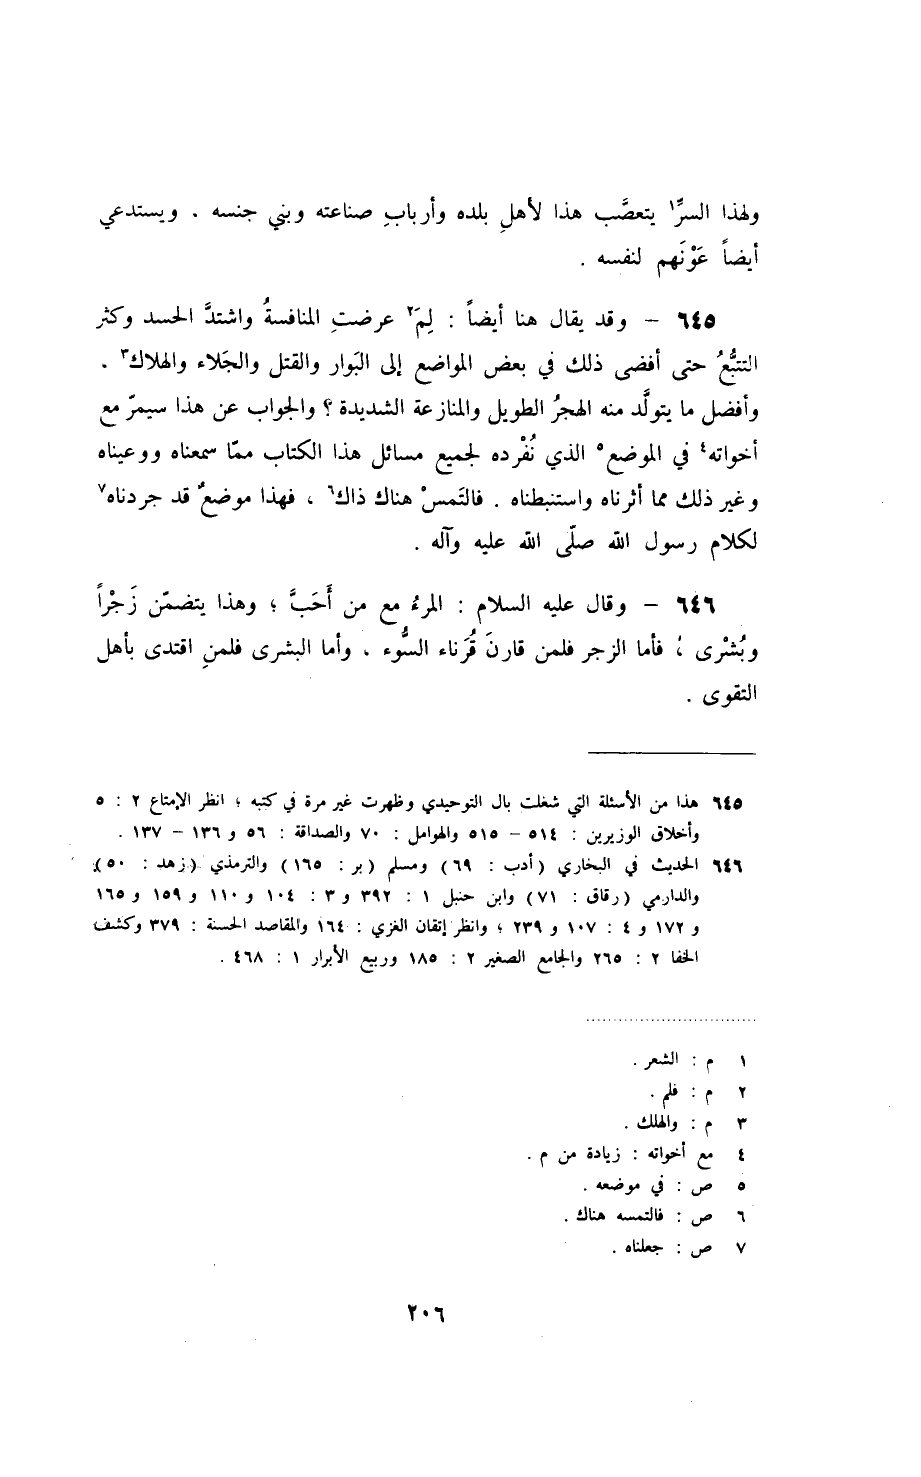 ولهذا السرِّ١ يتعصَّب هذا لأهلِ بلده وأربابِ صناعته وبني جنسه . ويستدعي
أيضاً عَوْنَهم لنفسه .
٦٤٥ – وقد يقال هنا أيضاً : لِمَ٢ عرضتِ المنافسةُ واشتدَّ الحسد وكثر
التتبُّعُ حتى أفضى ذلك في بعض المواضع إلى البَوار والقتل والجَلاء والهلاك٣ .
وأفضل ما يتولَّد منه الهجرُ الطويل والمنازعة الشديدة ؟ والجواب عن هذا سيمرّ مع
أخواته٤ في الموضع٥ الذي نُفْرده لجميع مسائل هذا الكتاب ممّا سمعناه ووعيناه
وغير ذلك مما أثرناه واستنبطناه . فالتَمسْ هناك ذاك٦ ، فهذا موضعٌ قد جردناه٧
لكلام رسول الله صلّى الله عليه وآله .
٦٤٦ – وقال عليه السلام : المرءُ مع من أَحَبَّ ؛ وهذا يتضمّن زَجْراً
وبُشْرى ؛ فأما الزجر فلمن قارنَ قُرَناء السُّوء . وأما البشرى فلمنِ اقتدى بأهل
التقوى .
٦٤٥ هذا من الأسئلة التي شغلت بال التوحيدي وظهرت غير مرة في كتبه ؛ انظر الإمتاع ٢ : ٥
وأخلاق الوزيرين : ٥١٤ – ٥١٥ والهوامل : ٧٠ والصداقة : ٥٦ و ١٣٦ – ١٣٧ .
٦٤٦ الحديث في البخاري (أدب : ٦٩) ومسلم (بر : ١٦٥) والترمذي (زهد : ٥٠)
والدارمي (رقاق : ٧١) وابن حنبل ١ : ٣٩٢ و ٣ : ١٠٤ و ١١٠ و ١٥٩ و ١٦٥
و ١٧٢ و ٤ : ١٠٧ و ٢٣٩ ؛ وانظر إتقان الغزي : ١٦٤ والمقاصد الحسنة : ٣٧٩ وكشف
الخفا ٢ : ٢٦٥ والجامع الصغير ٢ : ١٨٥ وربيع الأبرار ١ : ٤٦٨ .
١ م : الشعر .
٢ م : فلم .
٣ م : والهلك .
٤ مع أخواته : زيادة من م .
٥ ص : في موضعه .
٦ ص : فالتمسه هناك .
٧ ص : جعلناه .
٢٠٦